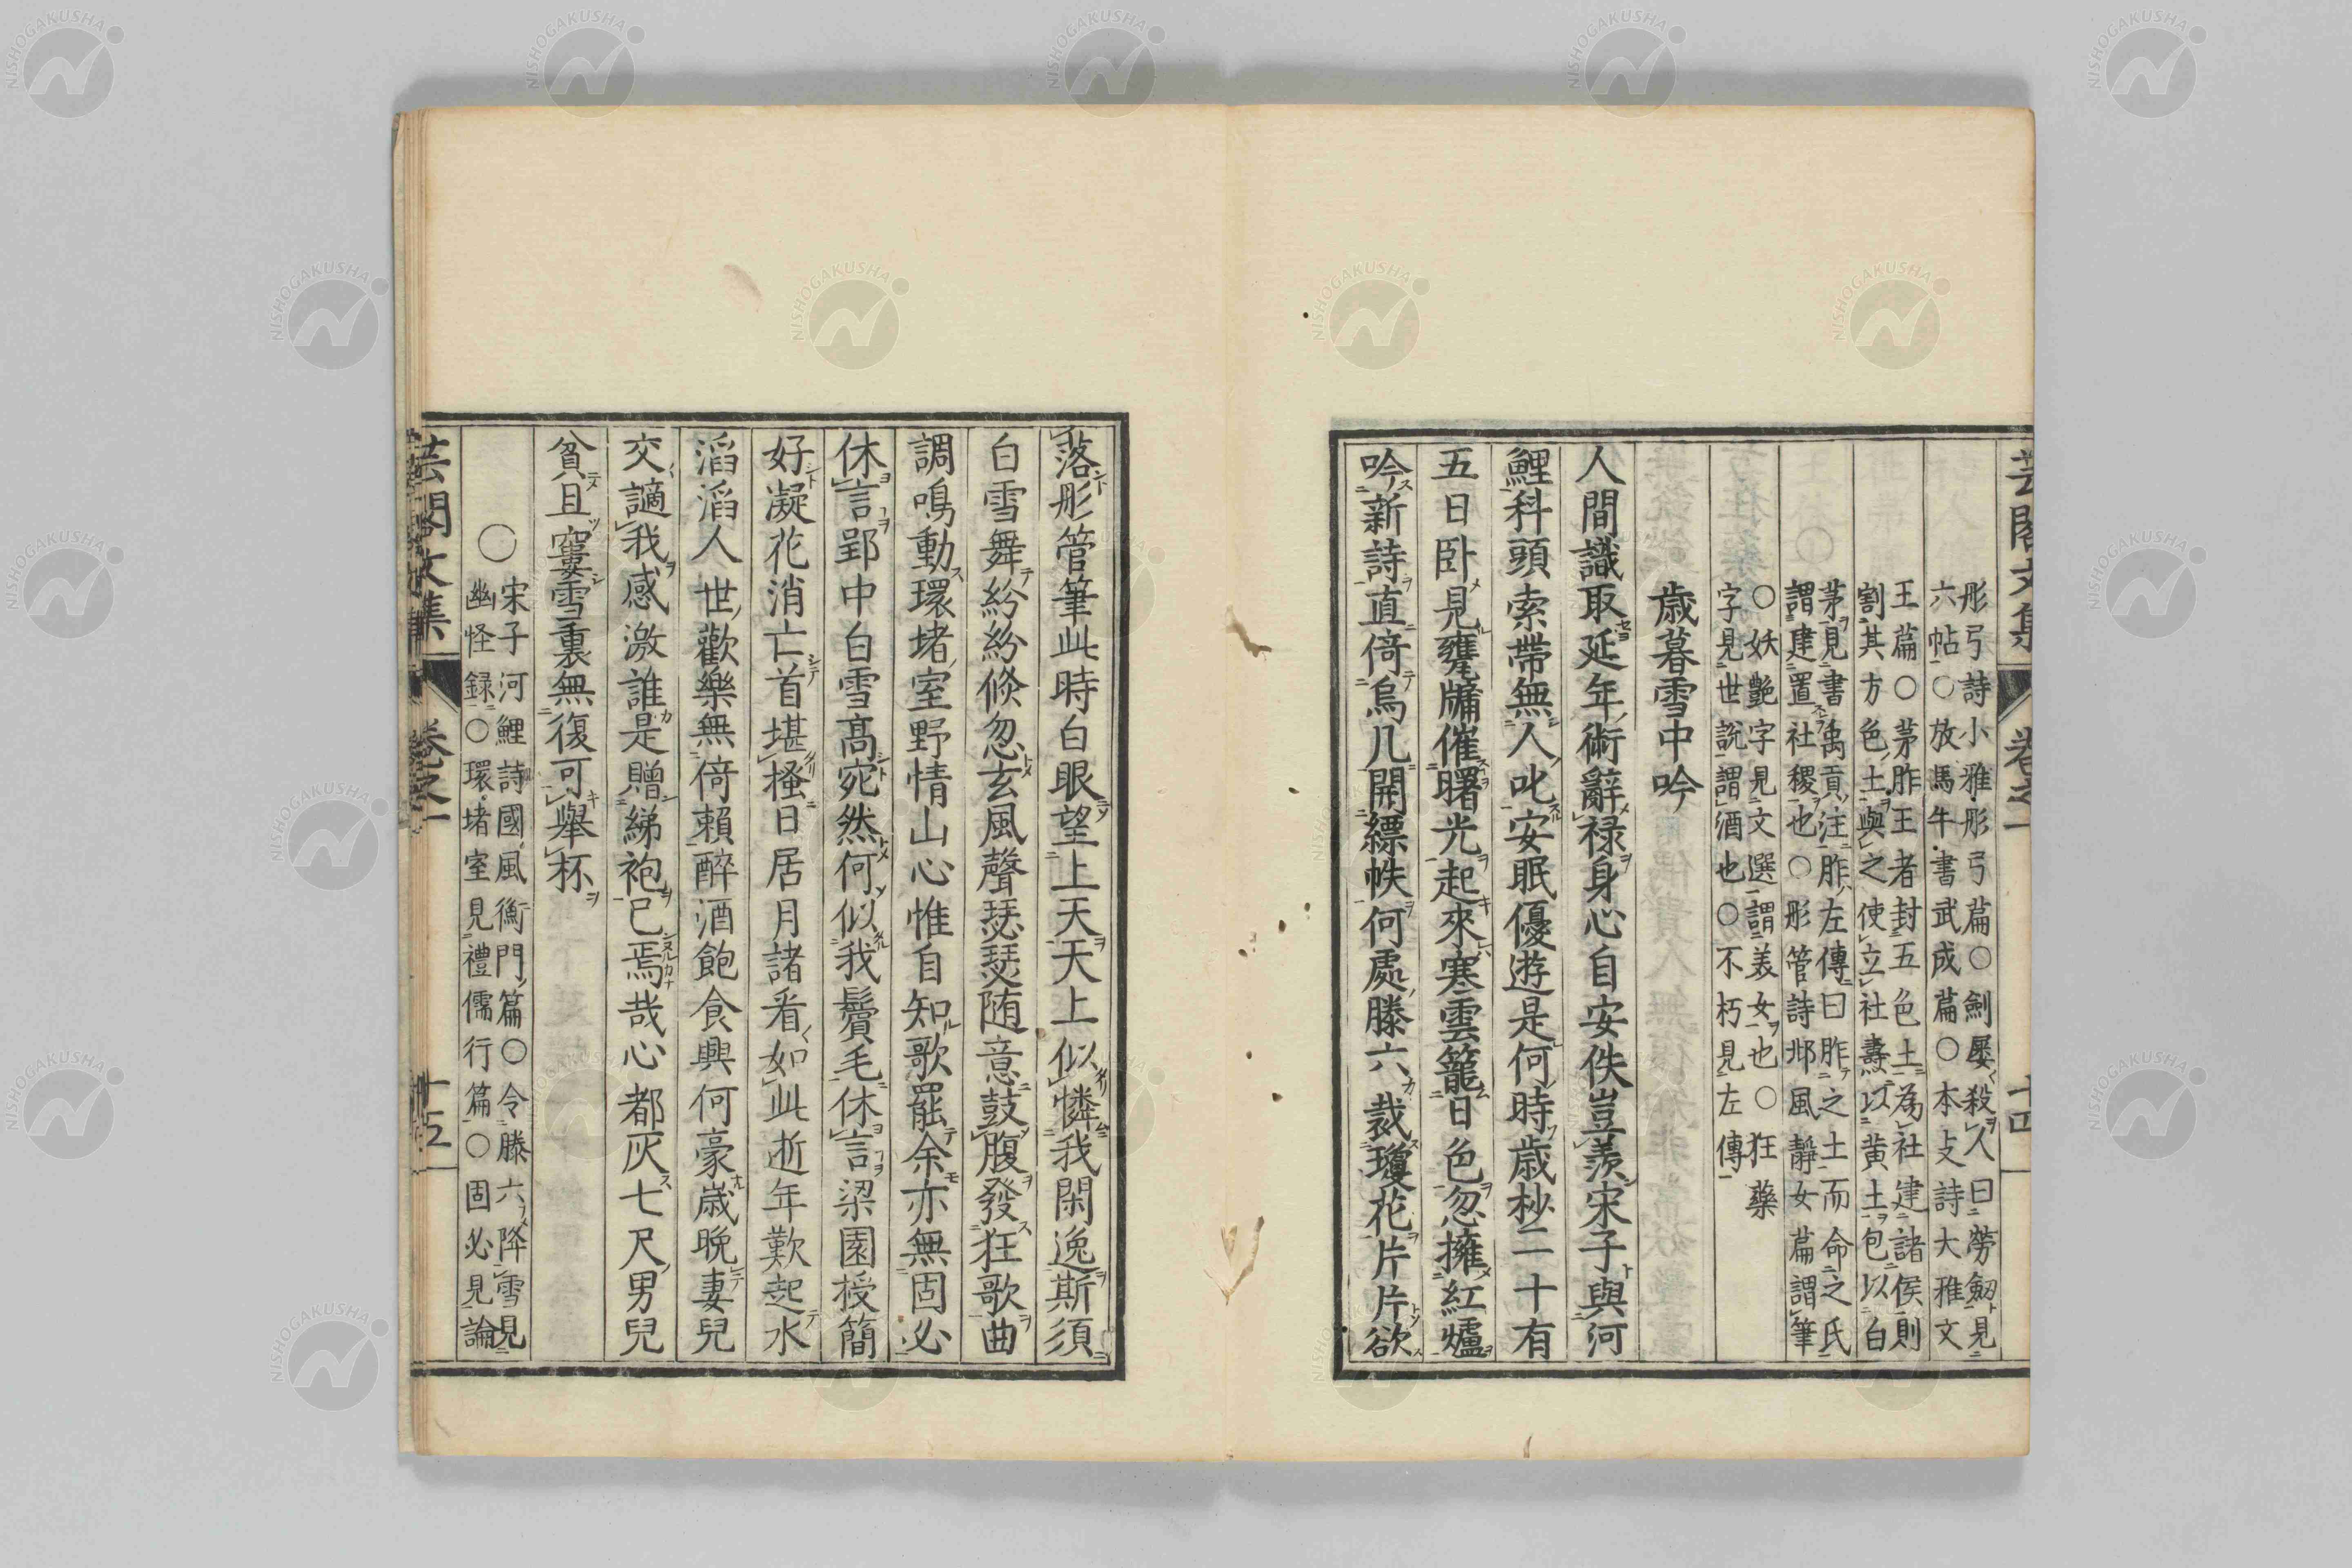 芸閣文集 卷之一 十四
彤弓詩小雅彤弓篇○劍屡殺人曰勞劒見
六帖○放馬牛書武成篇○本支詩大雅文
王篇○茅胙王者封五色土為社建諸侯則
割其方色土與之使立社燾以黄土包以白
茅見書禹貢注胙左傳曰胙之土而命之氏
謂建置社稷也○彤管詩邶風靜女篇謂筆
○妖艷字見文選謂美女也○狂藥
字見世說謂酒也○不朽見左傳
歳暮雪中吟
人間識取延年術辭禄身心自安佚豈羨宋子與河
鯉科頭索帶無人叱安眠優遊是何時歳杪二十有
五日卧見甕牖催曙光起來寒雲籠日色忽擁紅爐
吟新詩直倚烏几開縹帙何處滕六裁瓊花片片欲
落彤管筆此時白眼望上天天上似憐我閑逸斯須
白雪舞紛紛倐忽玄風聲瑟瑟随意鼓腹發狂歌曲
調鳴動環堵室野情山心惟自知歌罷余亦無固必
休言郢中白雪髙宛然何似我鬢毛休言梁園授簡
好凝花消亡首堪搔日居月諸看如此逝年歎起水
滔滔人世歡樂無倚頼醉酒飽食興何豪歳晩妻兒
交謫我感激誰是贈綈袍已焉哉心都灰七尺男兒
貧且窶雪裏無復可舉杯
○宋子河鯉詩國風衡門篇○令滕六降雪見
幽怪録○環堵室見禮儒行篇○固必見論
芸閣文集 卷之一 十五